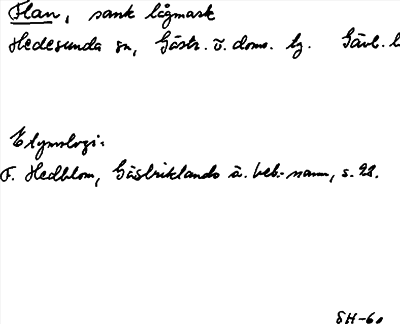 Flan, sank lågmark
Hedesunda sn, Gästr. ö. doms. hg. Gävl. l
Etymologi:
F. Hedblom, Gästriklands ä. beb.-namn, s. 28.
SH-60